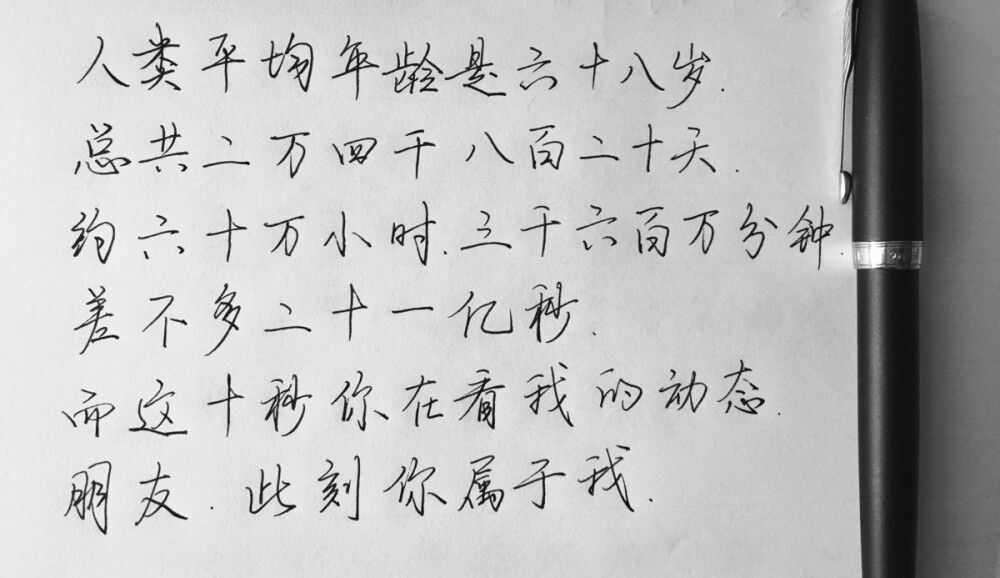 人类平均年龄是六十八岁.
总共二万四千八百二十天.
约六十万小时.三千六百万分钟.
差不多二十一亿秒.
而这十秒你在看我的动态.
朋友.此刻你属于我.